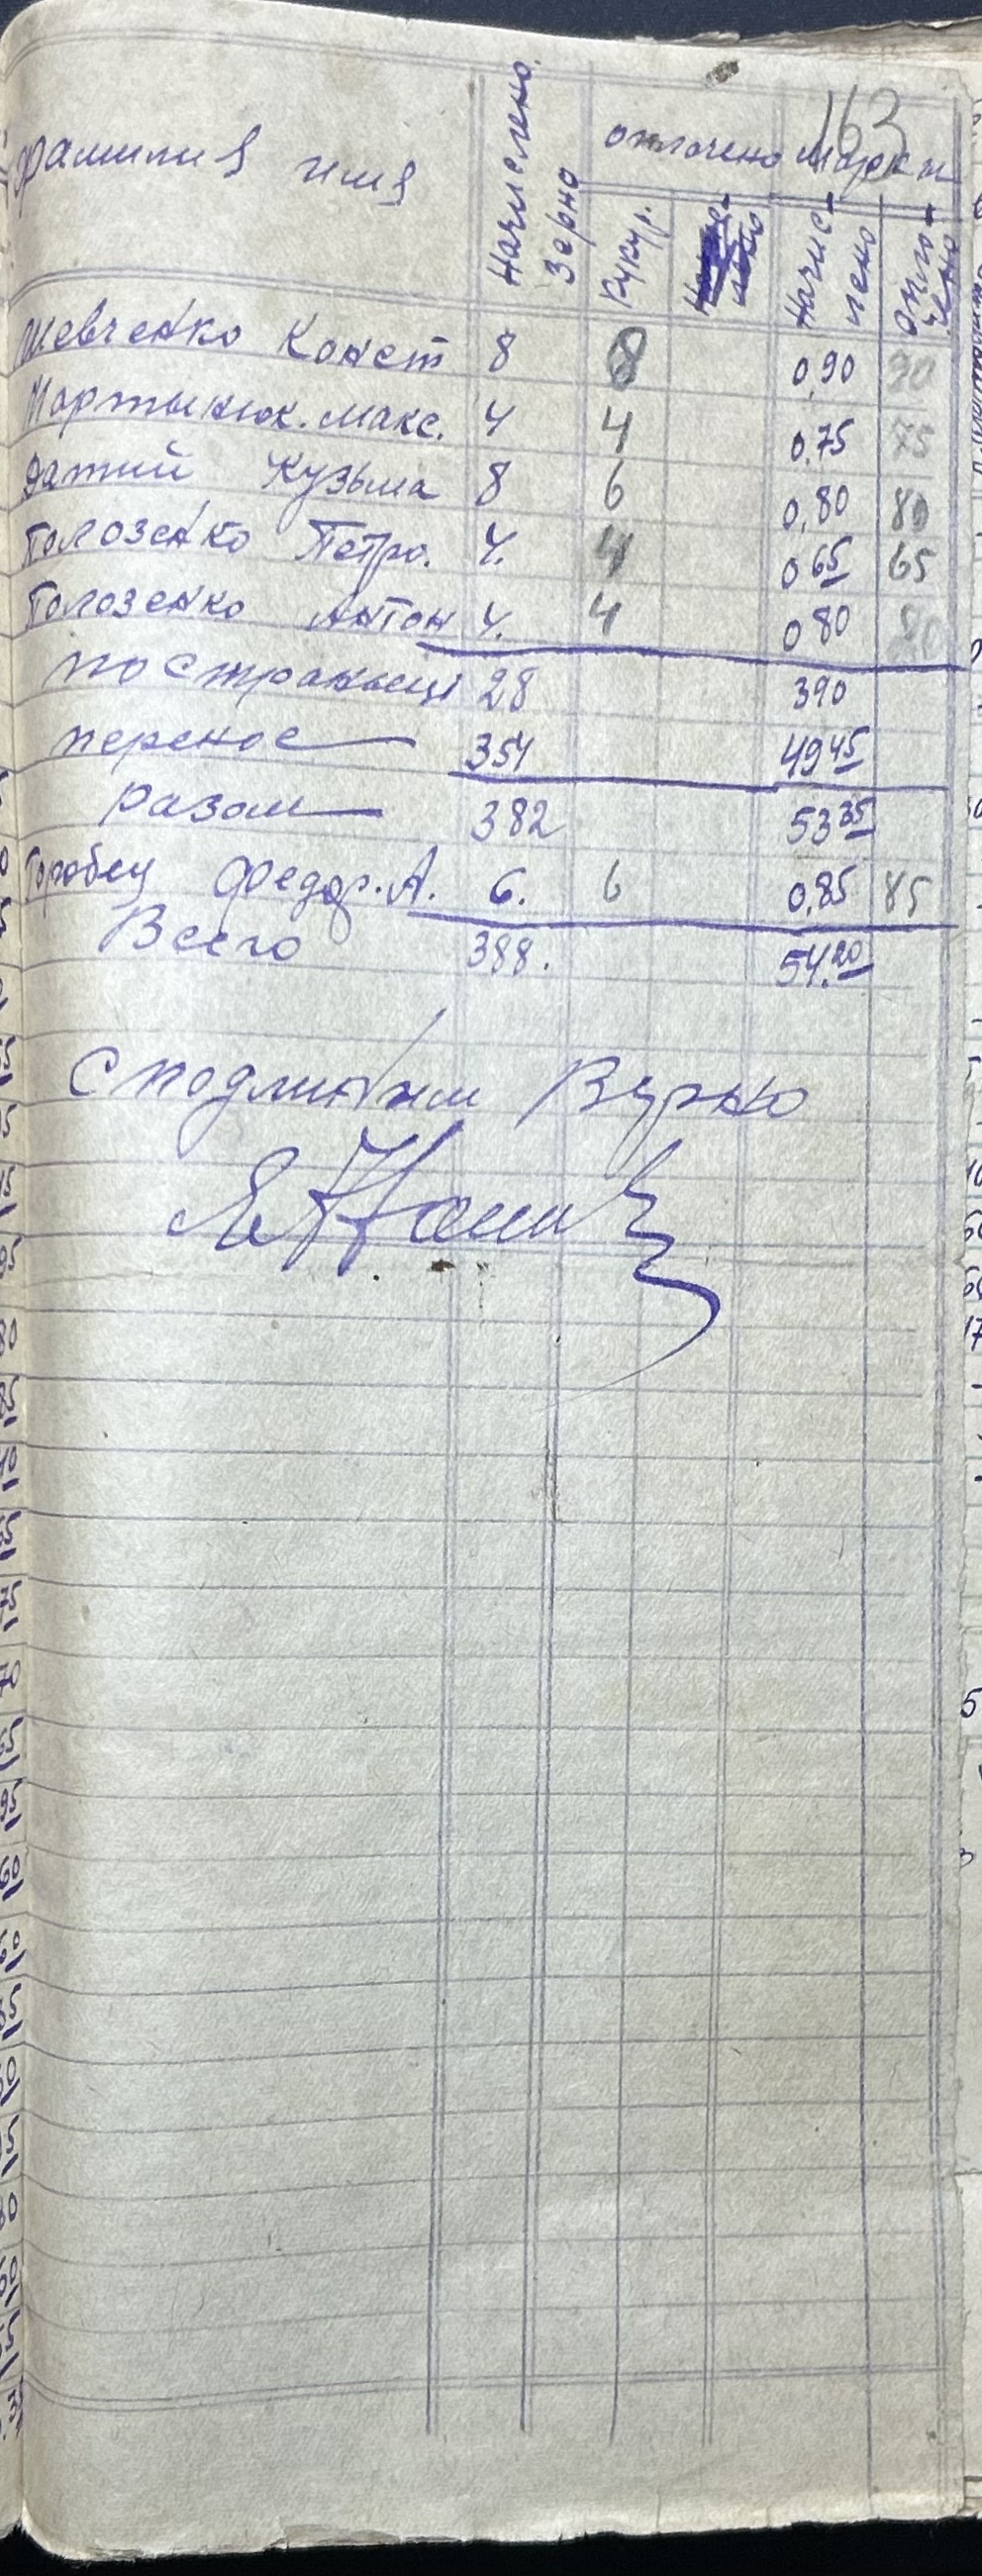 163
фамилия имя Начислено зерно оплочено Марки
кукур. Начис-лено опло-чено
Шевченко Конст 8 8 0,90 90
Мартынюк. Макс. 4 4 0,75 75
Датий Кузьма 8 6 0,80 80
Голозенко Петро. 4. 4 0 65 65
Голозенко Антон 4. 4 0 80 80
по страныці 28 390
перенос 354 49 45
разом 382 53 35
Горобец Федор. А. 6. 6 0,85 85
Всего 388. 54.20
С подлиным Вірно